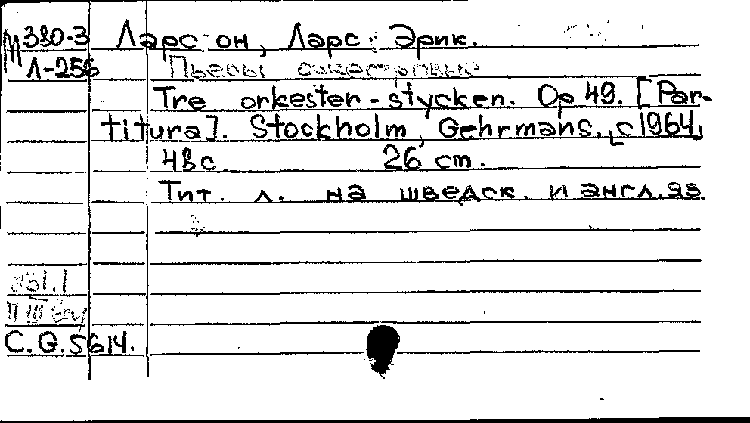 М 380-3 Ларссон, Ларс Эрик.
Л-256 Пьесы оркестровые
Tre orkester-stycken. Op 49. [Par-
titura]. Stockholm, Gehrmans, [c1964]
48 с 26 cm.
Тит. л. на шведск. и англ. яз.
C.G.5614.